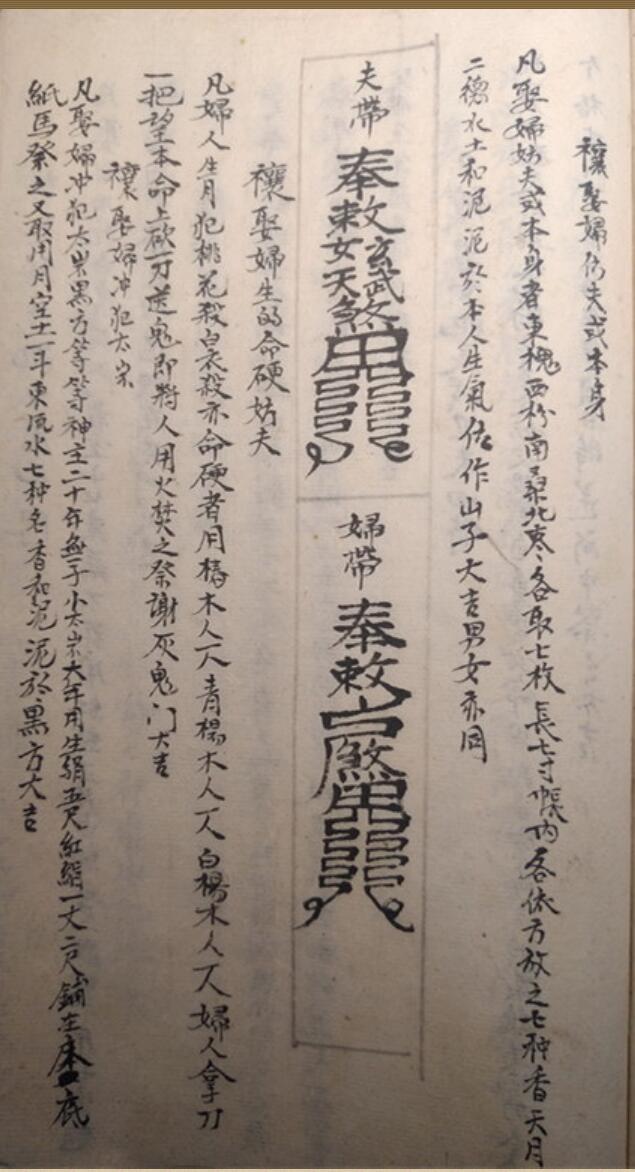 禳娶婦仿夫或本身
凡娶婦妨夫或本身者東槐西枌南桑北枣各取七枚長七寸帳内各依方放之七种香天月
二德水土和泥泥於本人生氣位作山子大吉男女亦同
夫帶
奉敕玄武女天煞
婦帶
奉敕
禳娶婦生的命硬妨夫
凡婦人生月犯桃花殺白衣殺亦命硬者用椿木人一个青楊木人一个白楊木人一个婦人拿刀
一把望本命上砍一刀送鬼即將人用火焚之祭謝灰鬼门大吉
禳娶婦冲犯太岁
凡娶婦冲犯太岁黑方等等神主二十年無子小太岁六年用生絹五尺紅絹一丈二尺鋪在床底
紙馬祭之又取用月空土一斗東流水七种名香和泥泥於黑方大吉